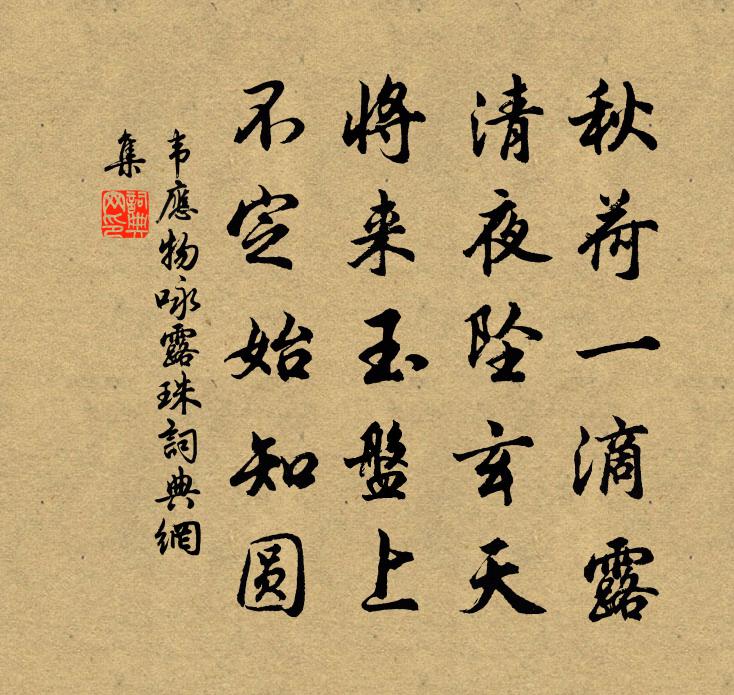 秋荷一滴露
清夜坠玄天
将来玉盤上
不定始知圆
韦應物咏露珠詞典網
集
詞典
网印